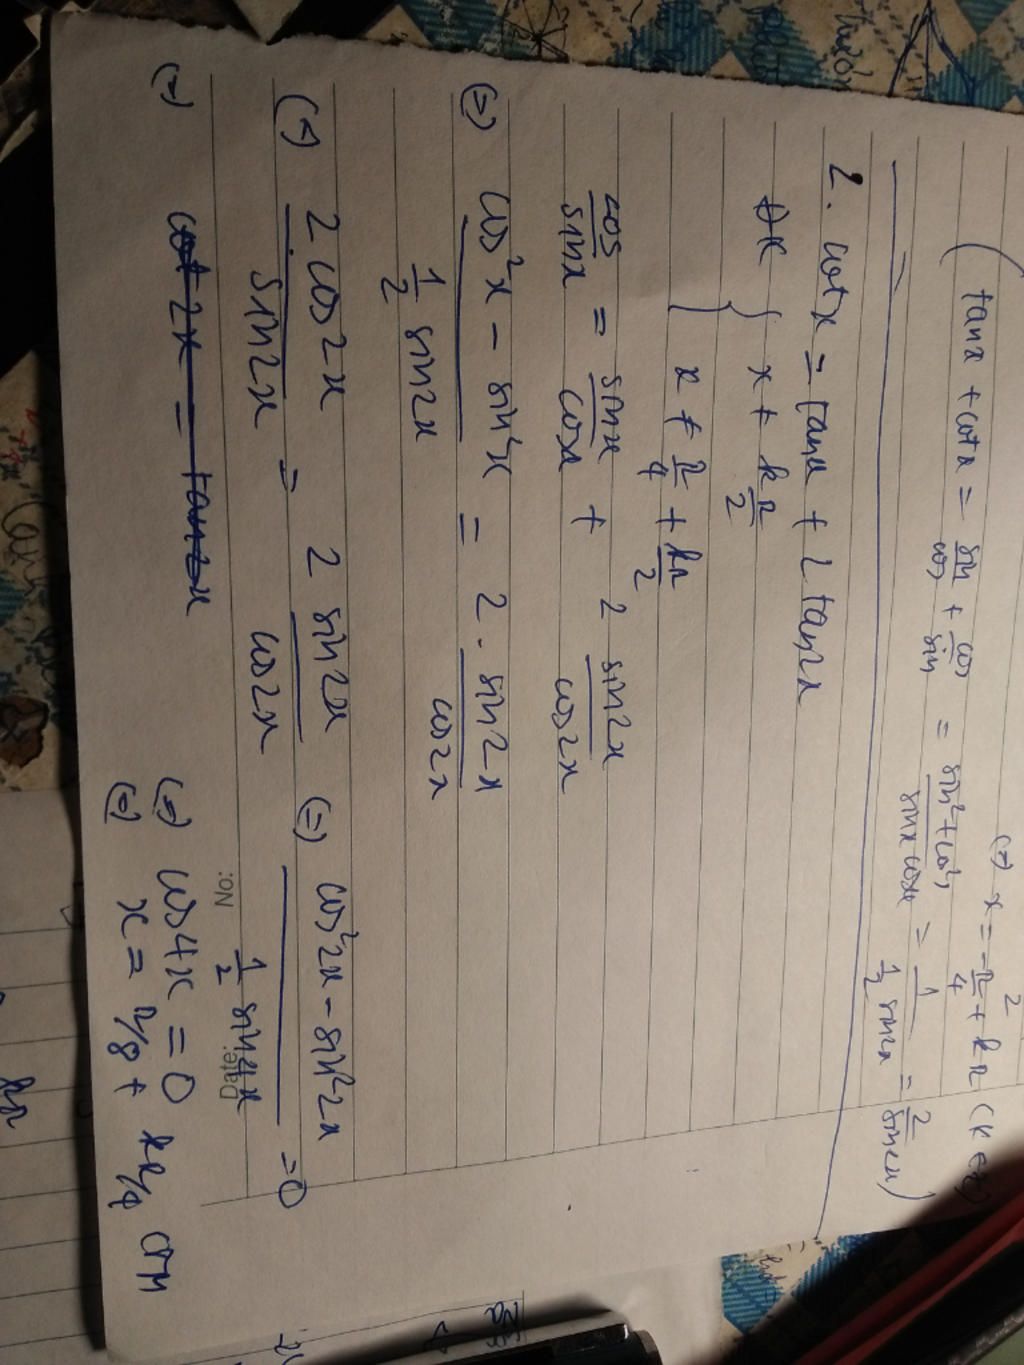 (=) x = -π/4 + kπ (k ∈ Z)
(tanx + cotx = sin/cos + cos/sin = sin²+cos²/sinx cosx = 1/(1/2 sin2x) = 2/sin2x)
2. cotx = tanx + 2 tan2x
ĐK { x ≠ kπ/2
x ≠ π/4 + kπ/2
cos/sinx = sinx/cosx + 2 sin2x/cos2x
(=) cos²x - sin²x / 1/2 sin2x = 2 . sin2x/cos2x
(=) 2 cos2x / sin2x = 2 sin2x / cos2x (=) cos²2x - sin²2x / 1/2 sin4x = 0
(=) cot 2x = tan2x (=) cos4x = 0
(=) x = π/8 + kπ/4
No:
Date: